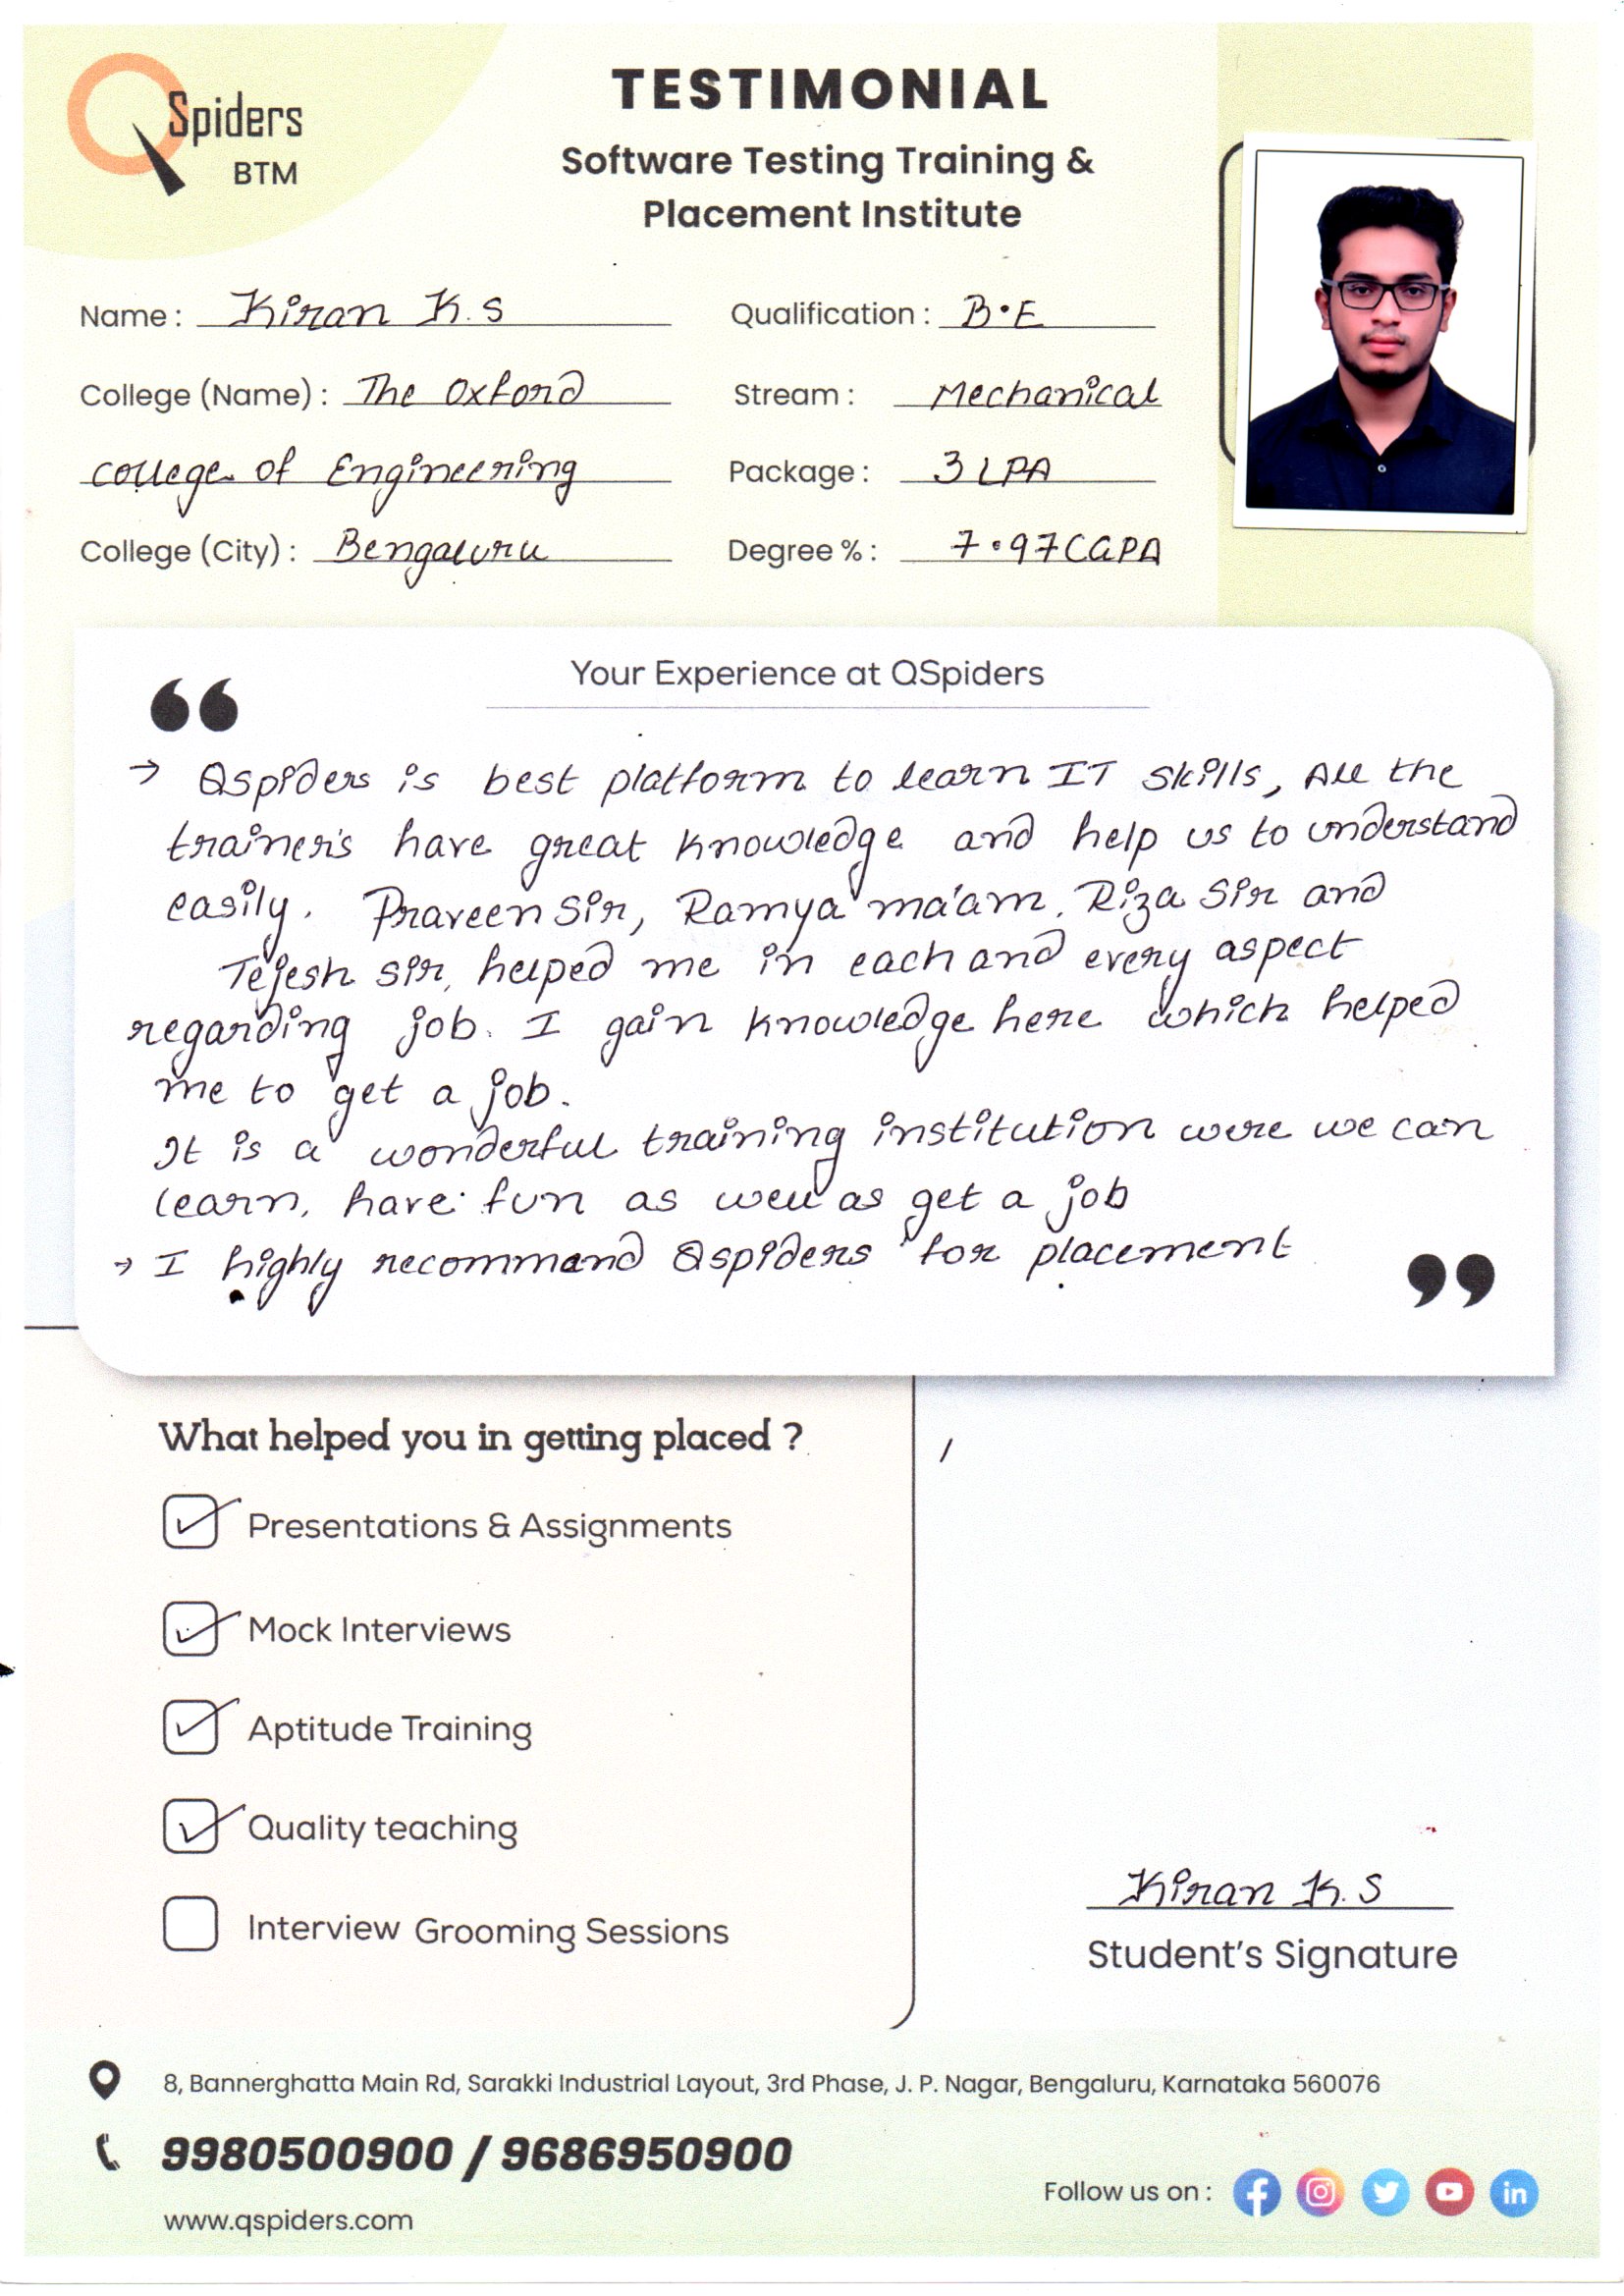 QSpiders
BTM
TESTIMONIAL
Software Testing Training &
Placement Institute
Name : Kiran K.S
Qualification : B.E
College (Name) : The Oxford
Stream : Mechanical
college of Engineering
Package : 3 LPA
College (City) : Bengaluru
Degree % : 7.97 CGPA
Your Experience at QSpiders
“
→ Qspiders is best platform to learn IT skills, All the
trainer's have great knowledge and help us to understand
easily. Praveen Sir, Ramya ma'am, Riza Sir and
Tejesh sir, helped me in each and every aspect
regarding job. I gain knowledge here which helped
me to get a job.
It is a wonderful training institution were we can
learn, have fun as well as get a job
→ I highly recommand Qspiders for placement
”
What helped you in getting placed ?
Presentations & Assignments
Mock Interviews
Aptitude Training
Quality teaching
Interview Grooming Sessions
Kiran K.S
Student's Signature
8, Bannerghatta Main Rd, Sarakki Industrial Layout, 3rd Phase, J. P. Nagar, Bengaluru, Karnataka 560076
9980500900 / 9686950900
www.qspiders.com
Follow us on :